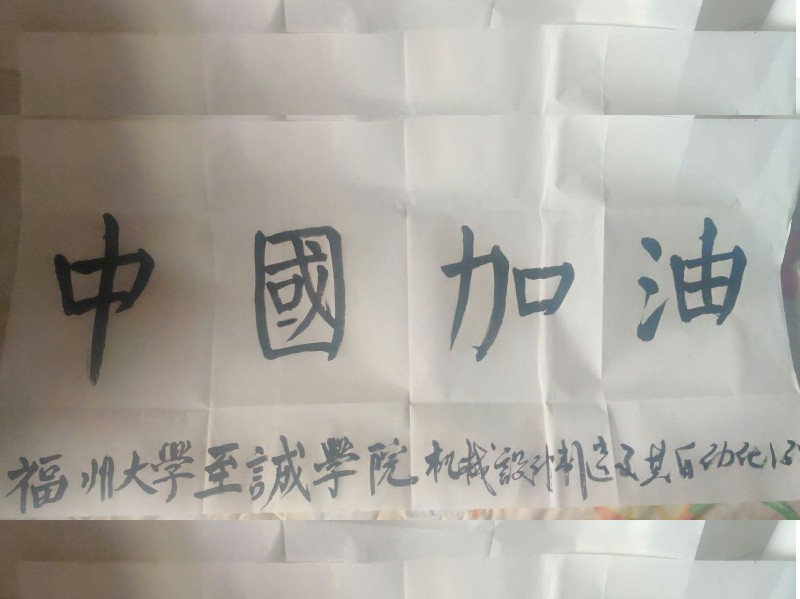 中國加油
福州大學至誠學院 机械設计制造及其自动化